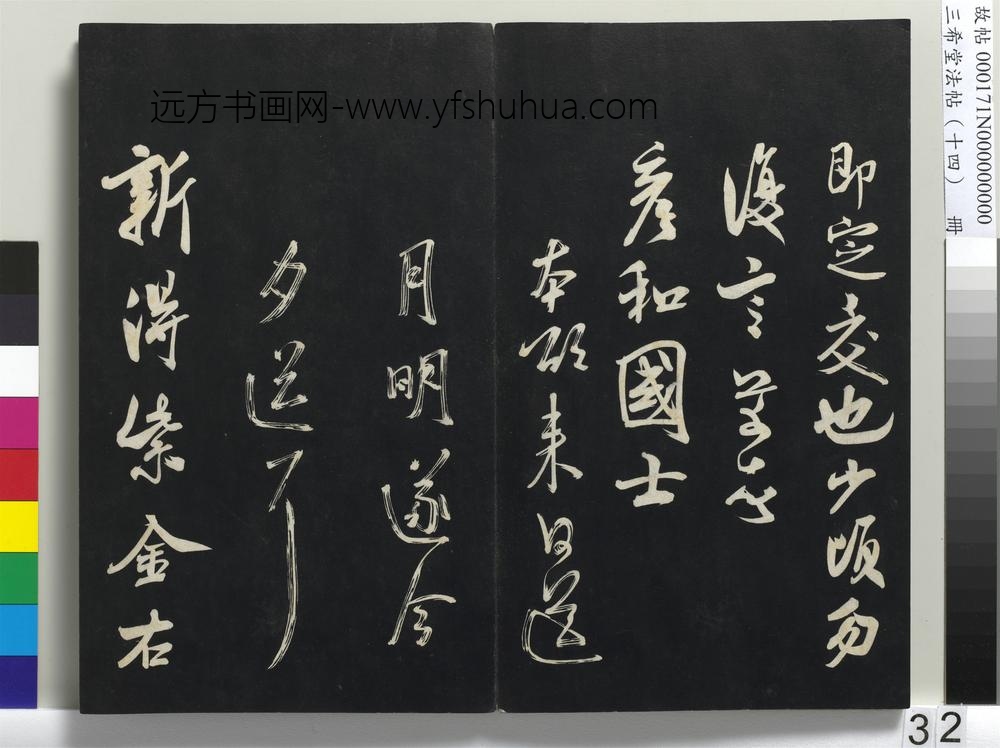 即定交也少頃勿
復言芾頓首
彥和國士
本欲來日送
月明遂今
夕送耳
新得紫金右
远方书画网-www.yfshuhua.com
故帖 000171N000000000
三希堂法帖（十四） 冊
32